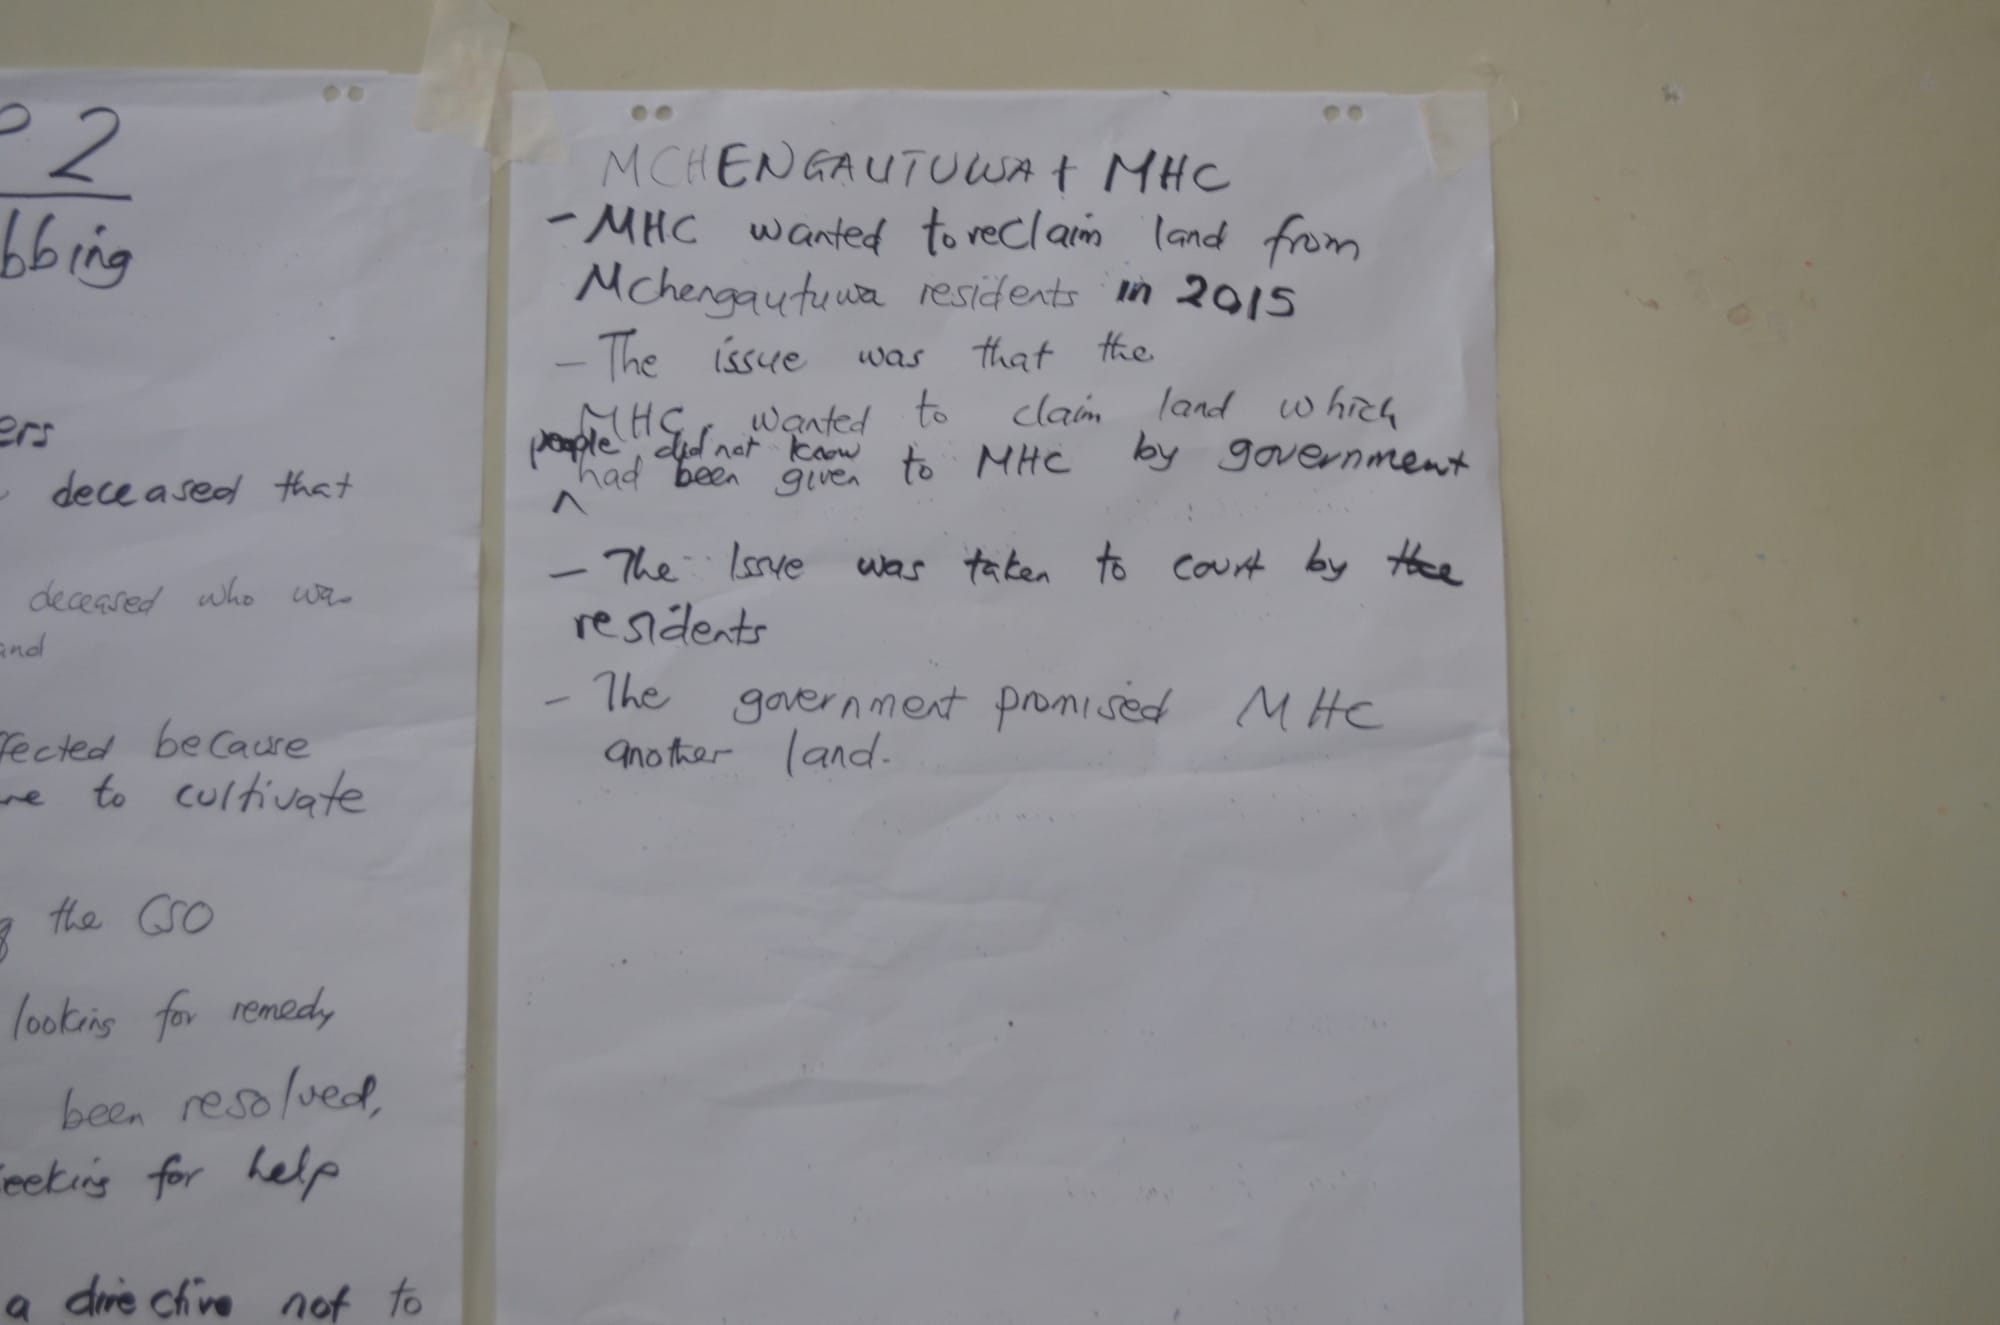 2
bbing
ers
deceased that
deceased who was
and
ffected because
to cultivate
the CSO
looking for remedy
been resolved,
eeking for help
a directive not to
MCHENGAUTUWA + MHC
- MHC wanted to reclaim land from
Mchengautuwa residents in 2015
- The issue was that the
MHC wanted to claim land which
people did not know
had been given to MHC by government
- The Issue was taken to court by the
residents
- The government promised MHC
another land.